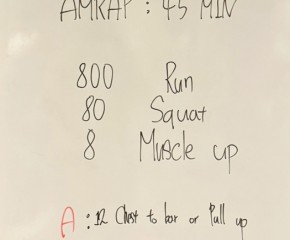 AMRAP : 45 MIN
800 Run
80 Squat
8 Muscle up
A : 12 Chest to bar or Pull up